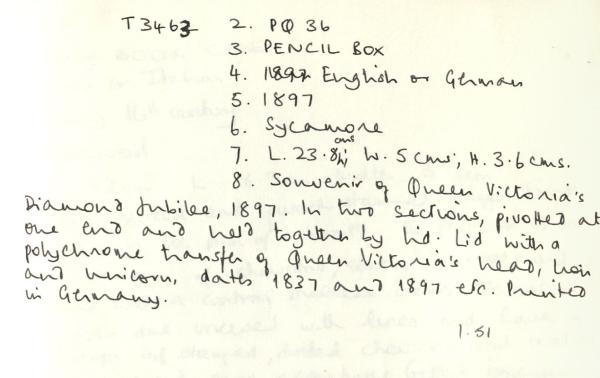 T3463 2. PQ 36
3. PENCIL BOX
4. English or German
5. 1897
6. Sycamore
7. L. 23.8 cms W. 5 cms, H. 3.6 cms.
8. Souvenir of Queen Victoria's
Diamond Jubilee, 1897. In two sections, pivotted at
one end and held together by lid. Lid with a
polychrome transfer of Queen Victoria's head, lion
and unicorn, dates 1837 and 1897 etc. Printed
in Germany.
1.51